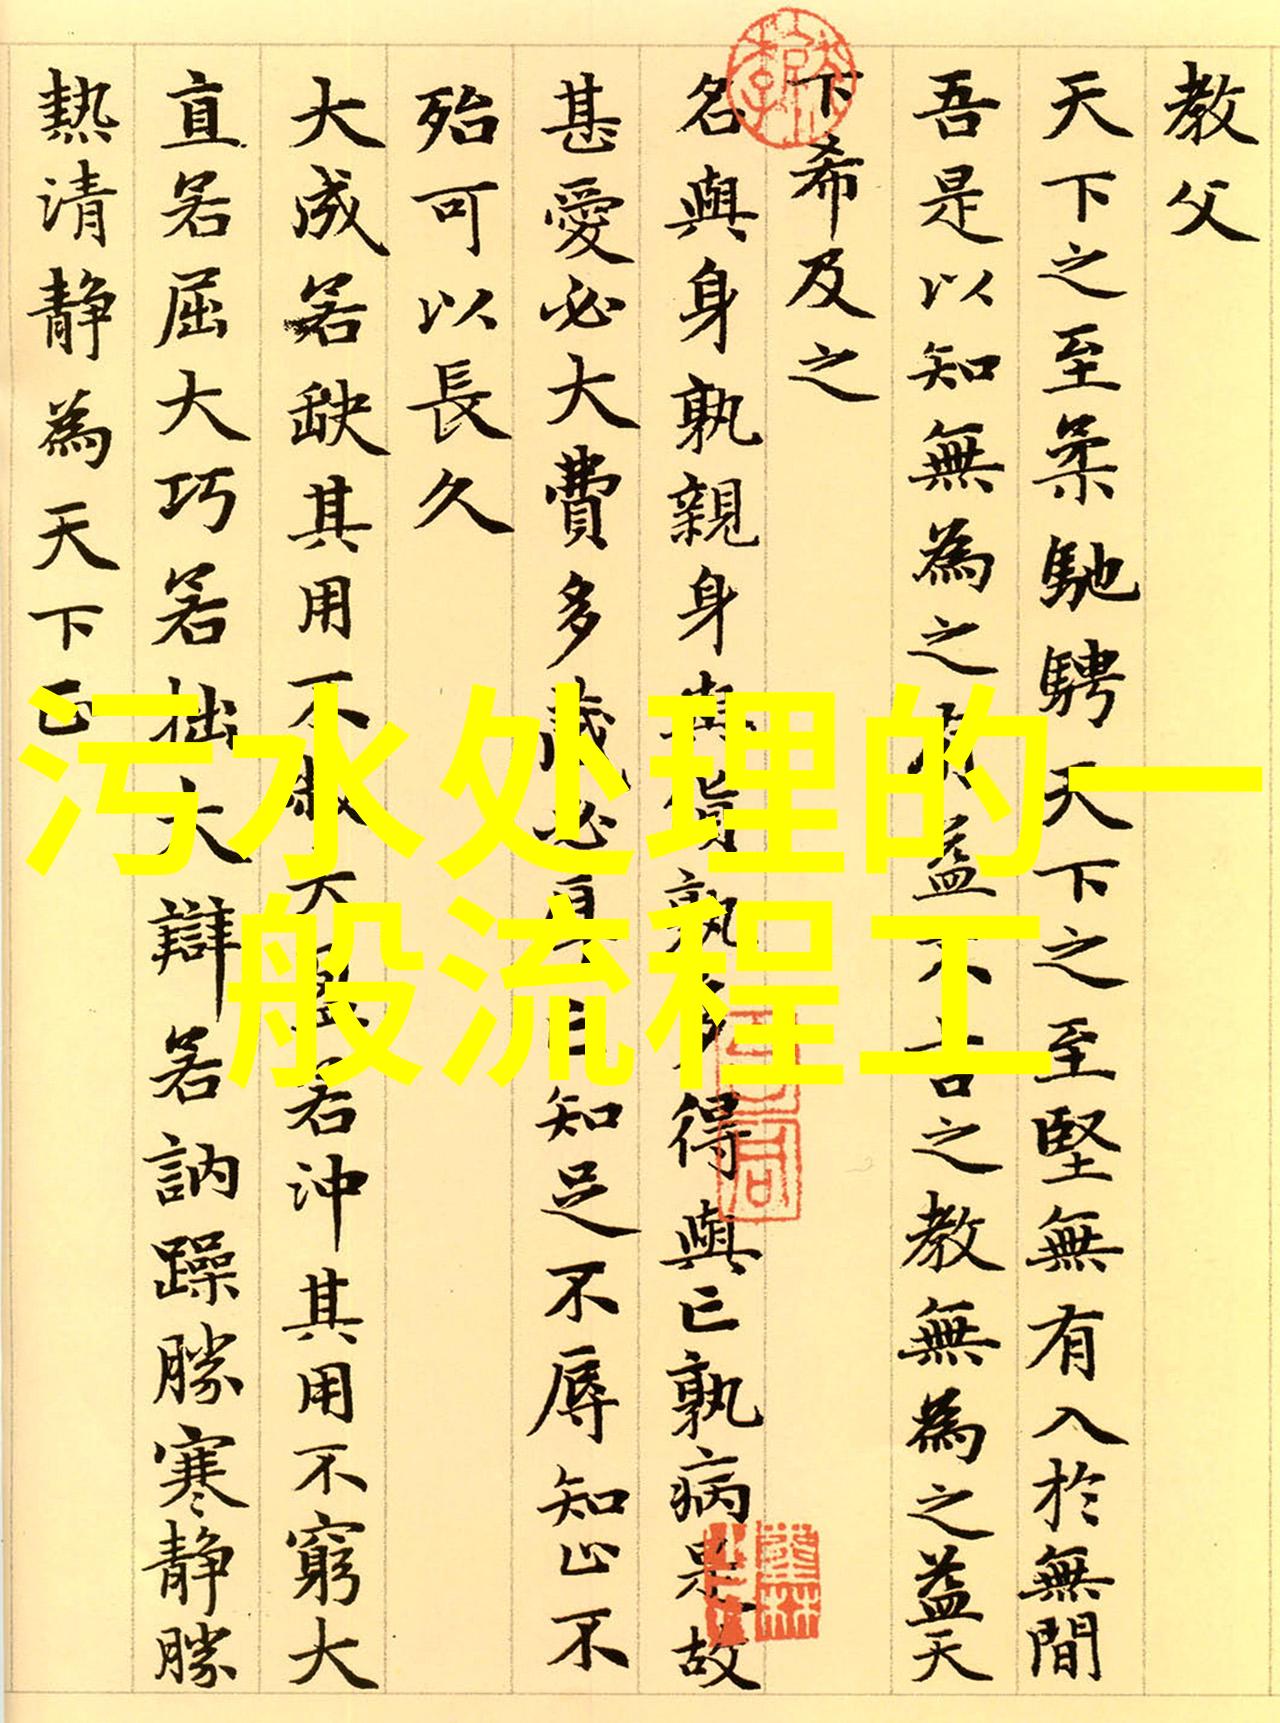 教父
天下之至柔馳騁天下之至堅無有入於無間
吾是以知無為之有益不言之教無為之益天
下希及之
名與身孰親身與貨孰多得與亡孰病是故
甚愛必大費多藏必厚亡知足不辱知止不
殆可以長久
大成若缺其用不敝大盈若沖其用不窮大
直若屈大巧若拙大辯若訥躁勝寒靜勝
熱清靜為天下正
污水处理的一
般流程工